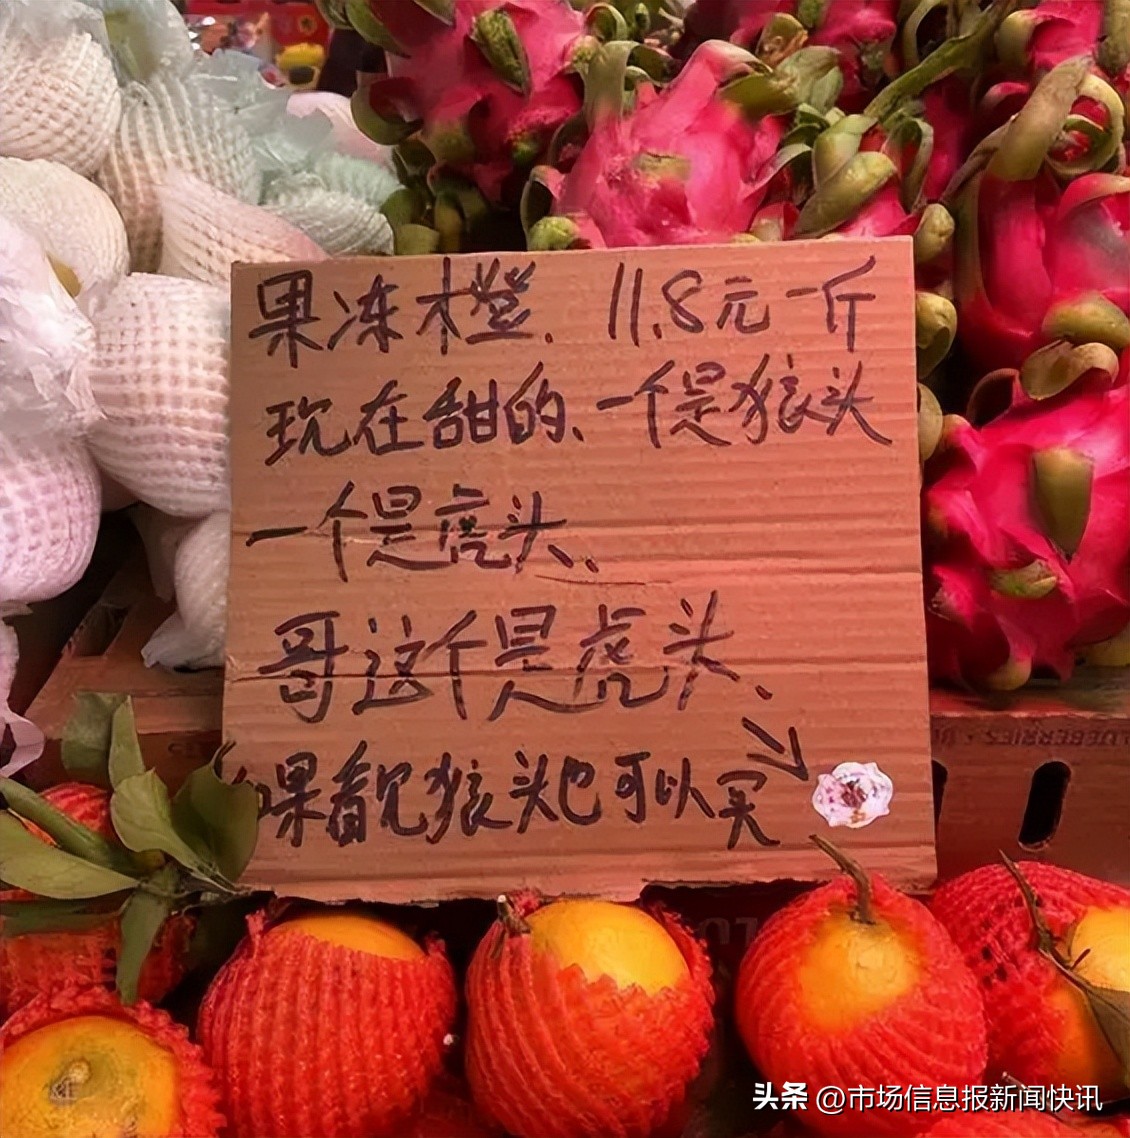 果冻橙. 11.8元一斤
现在甜的、一个是狼头
一个是虎头、
哥这个是虎头、
如果看见狼头也可以买
LUEBERRIES
头条 @市场信息报新闻快讯